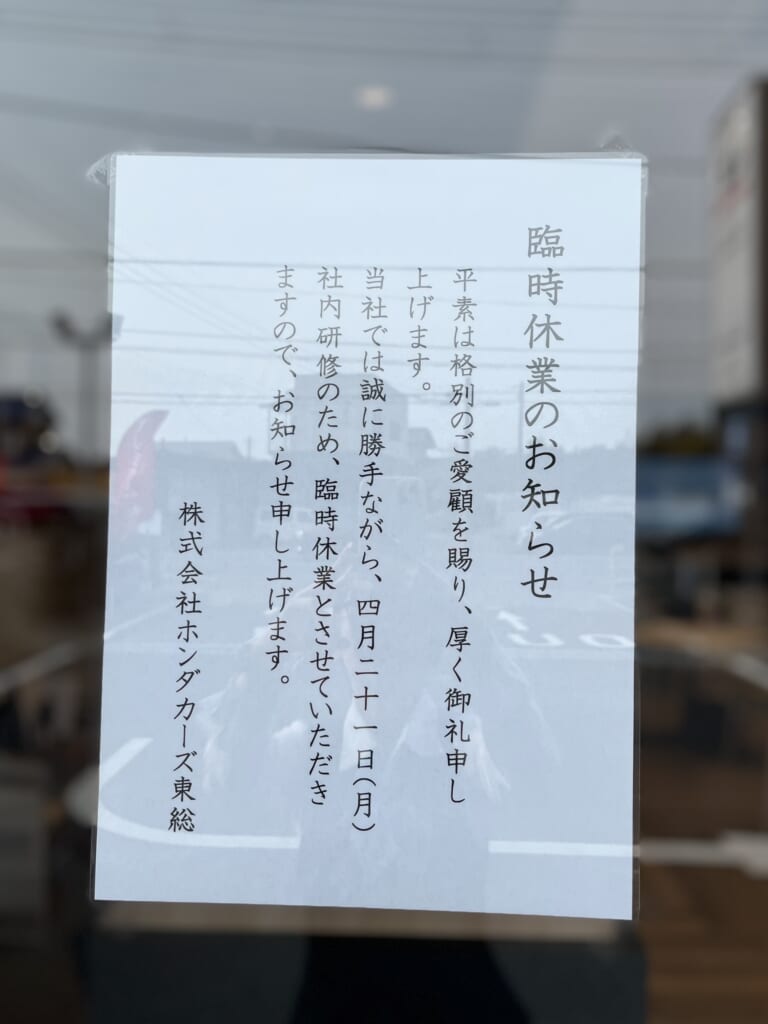 臨時休業のお知らせ
平素は格別のご愛顧を賜り、厚く御礼申し
上げます。
当社では誠に勝手ながら、四月二十一日(月)
社内研修のため、臨時休業とさせていただき
ますので、お知らせ申し上げます。
株式会社ホンダカーズ東総